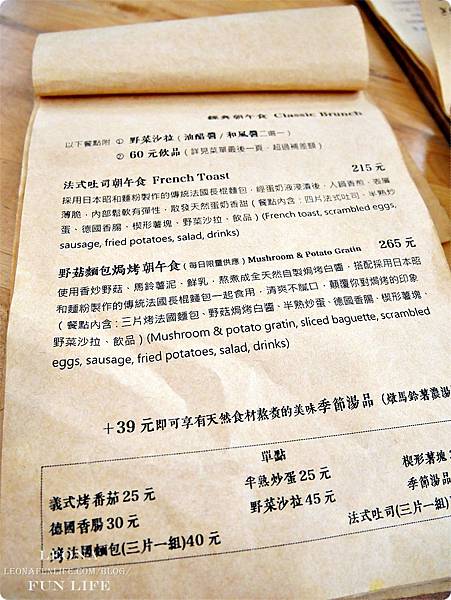 經典朝午食 Classic Brunch
以下餐點附 ① 野菜沙拉（油醋醬 / 和風醬二選一）
② 60元飲品（詳見菜單最後一頁，超過補差額）
法式吐司朝午食 French Toast 215元
採用日本昭和麵粉製作的傳統法國長棍麵包，經蛋奶液浸漬後，入鍋香煎，表層
薄脆，內部鬆軟有彈性，散發天然蛋奶香甜（餐點內含：四片法式吐司、半熟炒
蛋、德國香腸、楔形薯塊、野菜沙拉、飲品）(French toast, scrambled eggs,
sausage, fried potatoes, salad, drinks)
野菇麵包焗烤朝午食（每日限量供應）Mushroom & Potato Gratin 265元
使用香炒野菇、馬鈴薯泥、鮮乳，熬煮成全天然自製焗烤白醬，搭配採用日本昭
和麵粉製作的傳統法國長棍麵包一起食用，清爽不膩口，顛覆你對焗烤的印象
（餐點內含：三片烤法國麵包、野菇焗烤白醬、半熟炒蛋、德國香腸、楔形薯塊、
野菜沙拉、飲品）(Mushroom & potato gratin, sliced baguette, scrambled
eggs, sausage, fried potatoes, salad, drinks)
＋39元即可享有天然食材熬煮的美味季節湯品（燉馬鈴薯濃湯
單點
義式烤番茄25元 半熟炒蛋25元 楔形薯塊
德國香腸30元 野菜沙拉45元 季節湯品
法國麵包(三片一組)40元 法式吐司(三片一組)
LEONAFUNLIFE.COM/BLOG/
FUN LIFE